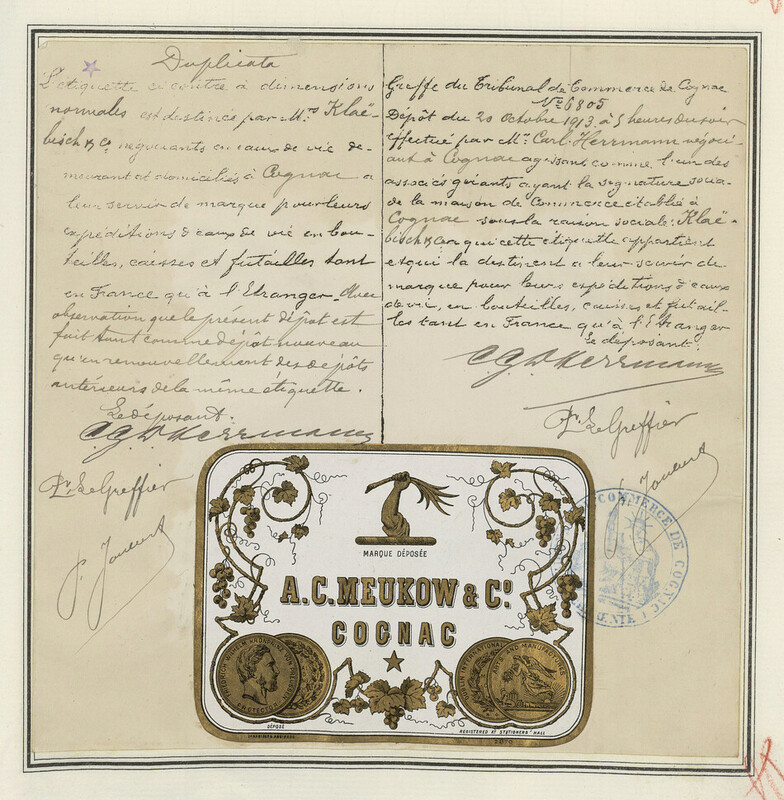 Duplicata
L'etiquette ci contre à dimensions
normales est destinée par M.rs Klaë-
bisch & Co négociants en eaux de vie de-
meurant et domiciliés à Cognac a
leur servir de marque pour leurs
expéditions d'eaux de vie en bou-
teilles, caisses et futailles tant
en France qu'à l'Etranger. Avec
observation que le présent dépôt est
fait tant comme dépôt nouveau
qu'en renouvellement des dépôts
antérieurs de la même etiquette.
Le déposant.
C.G.D. Herrmann
Pr. Le Greffier
Greffe du Tribunal de Commerce de Cognac
No 6805
Dépôt du 20 Octobre 1913. à 5 heures du soir
effectué par Mr. Carl. Herrmann négoci-
ant à Cognac agissant comme l'un des
associés gérants ayant la signature socia-
le de la maison de Commerce établie à
Cognac sous la raison sociale: Klaë-
bisch & Co a qui cette étiquette appartient
et qui la destinent a leur servir de
marque pour leurs expéditions d'eaux
de vie, en bouteilles, caisses et futail-
les tant en France qu'à l'Etranger
Le déposant.
C.G.D. Herrmann
Pr. Le Greffier
COMMERCE DE COGNAC
MARQUE DÉPOSÉE
A.C. MEUKOW & Co.
COGNAC
FRIEDRICH WILHELM KRONPRINZ VON PREUSSEN
PROTECTOR
INTERNATIONAL
ARTS AND MANUFACTURES
DÉPOSÉ
REGISTERED AT STATIONERS' HALL